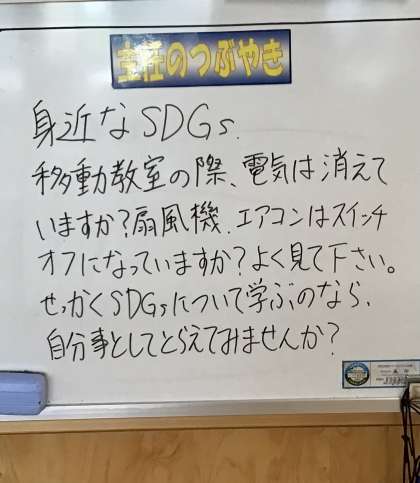 主任のつぶやき
身近なSDGs.
移動教室の際、電気は消えて
いますか?扇風機.エアコンはスイッチ
オフになっていますか?よく見て下さい。
せっかくSDGsについて学ぶのなら、
自分事としてとらえてみませんか?